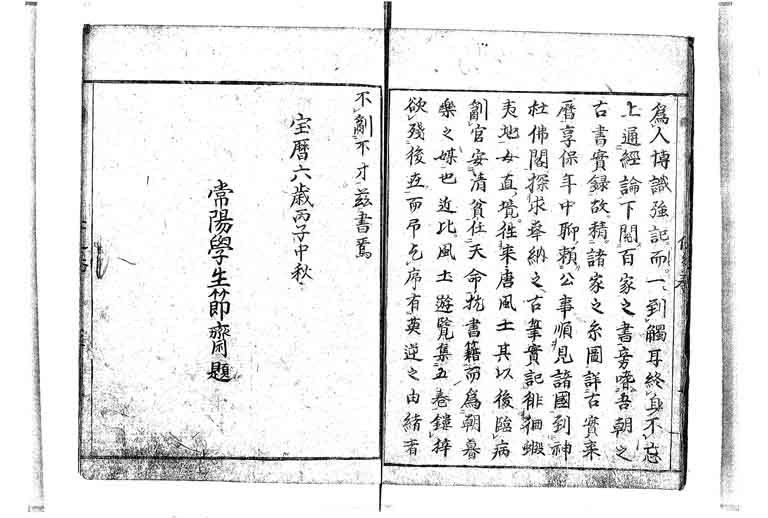 爲人博識強記而一到觸耳終身不忘
上通經論下閲百家之書旁嗜吾朝之
古書實録故精諸家之系圖詳古實来
暦享保年中聊頼公事順見諸國到神
社佛閣探求奉納之古筆實記徘徊蝦
夷地女直境徃来唐風土其以後臨病
辭官安清貧任天命抗書籍而爲朝暮
樂之媒也近比風土遊覧集五巻鏤梓
欲殘後世而吊乞席有莫逆之由緒者
不辭不才茲書焉
宝暦六歳丙子中秋
常陽學生節齋題